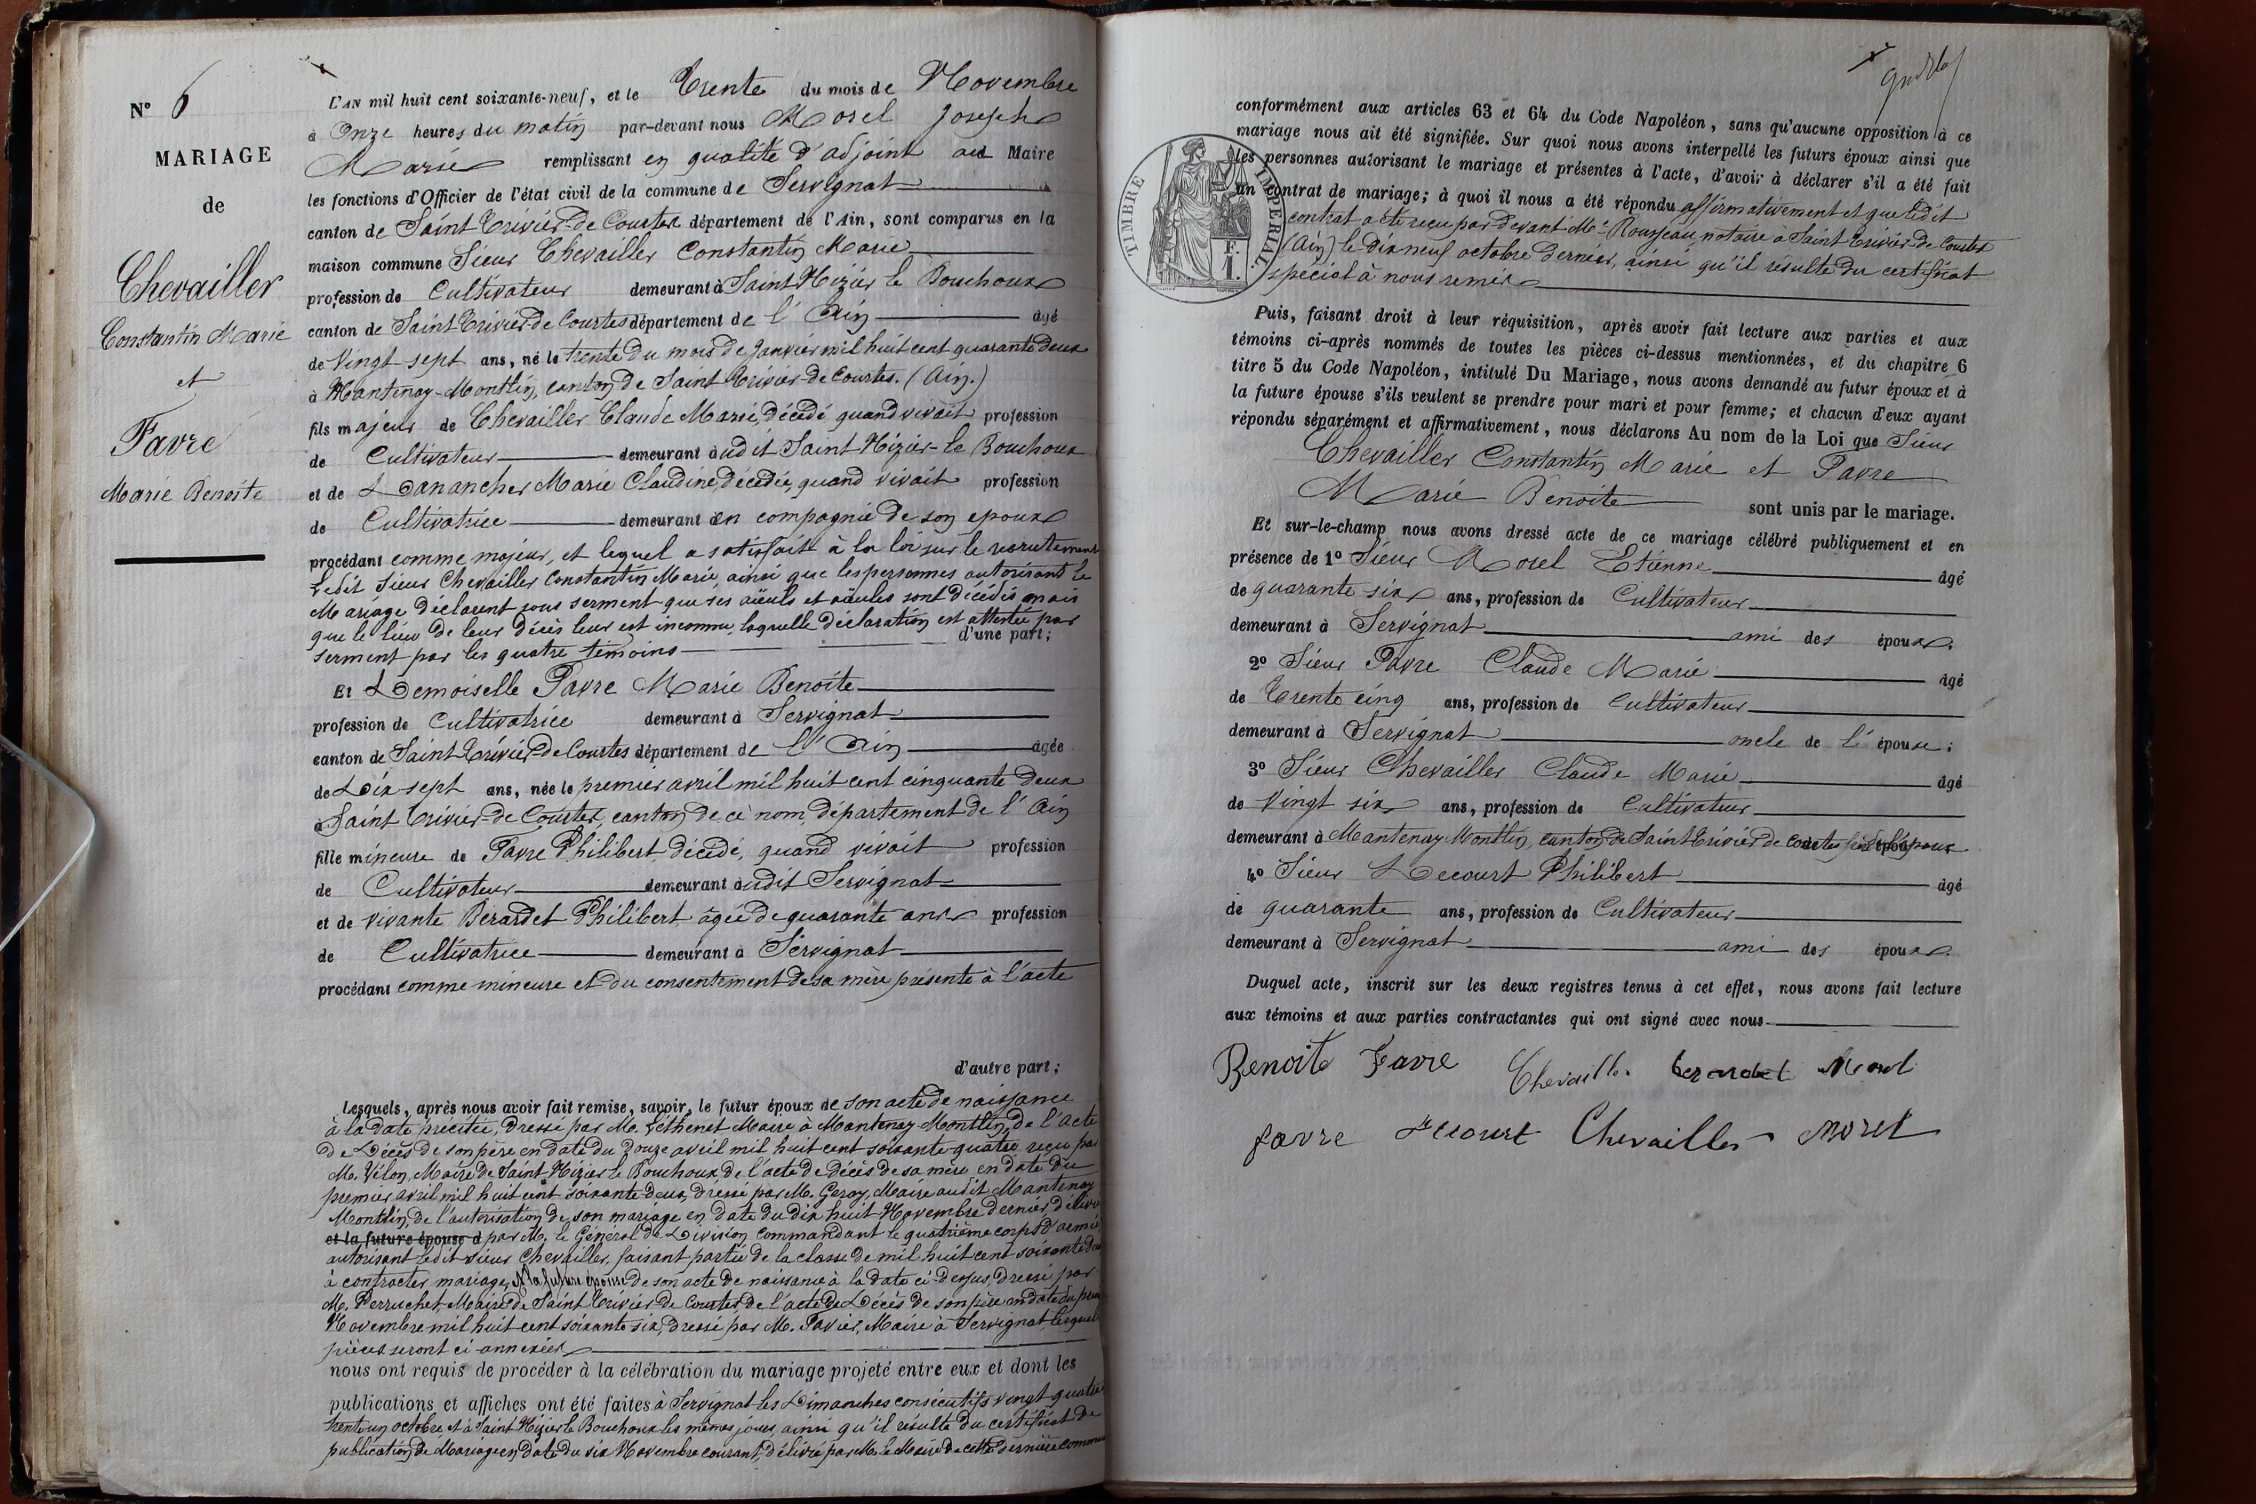 N° 6
MARIAGE
de
Chevailler
Constantin Marie
et
Favre
Marie Benoite
L'AN mil huit cent soixante-neuf, et le Trente du mois de Novembre
à Onze heures du matin par-devant nous Morel Joseph
Marie remplissant en qualité d'adjoint au Maire
les fonctions d'Officier de l'état civil de la commune de Servignat
canton de Saint Trivier-de Courtes département de l'Ain, sont comparus en la
maison commune Sieur Chevailler Constantin Marie
profession de Cultivateur demeurant à Saint Nizier le Bouchoux
canton de Saint Trivier de Courtes département de l'Ain âgé
de Vingt sept ans, né le trente du mois de Janvier mil huit cent quarante deux
à Mantenay-Montlin, canton de Saint Trivier de Courtes. (Ain.)
fils majeur de Chevailler Claude Marie, décédé quand vivait profession
de Cultivateur demeurant audit Saint-Nizier-le Bouchoux
et de Danancher Marie Claudine, décédée, quand vivait profession
de Cultivatrice demeurant en compagnie de son époux
procédant comme majeur, et lequel a satisfait à la loi sur le recrutement
Ledit sieur Chevailler Constantin Marie, ainsi que les personnes autorisant le
Mariage déclarent sous serment que ses aïeuls et aïeules sont décédés mais
que le lieu de leur décès leur est inconnu, laquelle déclaration est attestée par
serment par les quatre témoins d'une part;
Et Demoiselle Favre Marie Benoite
profession de Cultivatrice demeurant à Servignat
canton de Saint Trivier de Courtes département de l'Ain âgée
de Dix-sept ans, née le premier avril mil huit cent cinquante deux
à Saint Trivier-de Courtes, canton de ce nom, département de l'Ain
fille mineure de Favre Philibert décédé, quand vivait profession
de Cultivateur demeurant audit Servignat
et de vivante Berardet Philibert âgée de quarante ans profession
de Cultivatrice demeurant à Servignat
procédant comme mineure et du consentement de sa mère présente à l'acte
d'autre part;
Lesquels, après nous avoir fait remise, savoir, le futur époux de son acte de naissance
à la date précitée, dressé par M. Péthenet Maire à Mantenay-Montlin, de l'acte
de Décès de son père en date du douze avril mil huit cent soixante-quatre reçu par
M. Vélon, Maire de Saint Nizier le Bouchoux, de l'acte de Décès de sa mère en date du
premier avril mil huit cent soixante deux, dressé par M. Geray, Maire audit Mantenay
Montlin, de l'autorisation de son mariage en date du dix huit Novembre dernier, délivré
et la future épouse d par M. le Général de Division commandant le quatrième corps d'armée
autorisant ledit sieur Chevailler, faisant partie de la classe de mil huit cent soixante
à contracter mariage, et la future épouse de son acte de naissance à la date ci-dessus, dressé par
M. Perruchet Maire de Saint Trivier de Courtes, de l'acte de Décès de son père en date du
Novembre mil huit cent soixante six, dressé par M. Pavier, Maire à Servignat, lesquelles
pièces seront ci-annexées
nous ont requis de procéder à la célébration du mariage projeté entre eux et dont les
publications et affiches ont été faites à Servignat les Dimanches consécutifs vingt quatre
trente un octobre, et à Saint Nizier le Bouchoux les mêmes jours, ainsi qu'il résulte du certificat de
publication de Mariage en date du six Novembre courant, délivré par M. le Maire de cette dernière commune
conformément aux articles 63 et 64 du Code Napoléon, sans qu'aucune opposition à ce
mariage nous ait été signifiée. Sur quoi nous avons interpellé les futurs époux ainsi que
les personnes autorisant le mariage et présentes à l'acte, d'avoir à déclarer s'il a été fait
un contrat de mariage; à quoi il nous a été répondu affirmativement et que ledit
contrat a été reçu par devant Me Rousseau notaire à Saint Trivier de Courtes
(Ain) le dix neuf octobre dernier, ainsi qu'il résulte du certificat
spécial à nous remis
TIMBRE IMPÉRIAL
F.
1.
Puis, faisant droit à leur réquisition, après avoir fait lecture aux parties et aux
témoins ci-après nommés de toutes les pièces ci-dessus mentionnées, et du chapitre 6
titre 5 du Code Napoléon, intitulé Du Mariage, nous avons demandé au futur époux et à
la future épouse s'ils veulent se prendre pour mari et pour femme; et chacun d'eux ayant
répondu séparément et affirmativement, nous déclarons Au nom de la Loi que Sieur
Chevailler Constantin Marie et Favre
Marie Benoite sont unis par le mariage.
Et sur-le-champ nous avons dressé acte de ce mariage célébré publiquement et en
présence de 1° Sieur Morel Etienne âgé
de quarante six ans, profession de Cultivateur
demeurant à Servignat ami des époux.
2° Sieur Favre Claude Marie âgé
de Trente cinq ans, profession de Cultivateur
demeurant à Servignat oncle de l'épouse;
3° Sieur Chevailler Claude Marie âgé
de Vingt six ans, profession de Cultivateur
demeurant à Mantenay Montlin, canton de Saint Trivier de Courtes
4° Sieur Decourt Philibert âgé
de quarante ans, profession de Cultivateur
demeurant à Servignat ami des époux.
Duquel acte, inscrit sur les deux registres tenus à cet effet, nous avons fait lecture
aux témoins et aux parties contractantes qui ont signé avec nous.
Benoite Favre Chevailler berardet Morel
favre Decourt Chevailler Morel